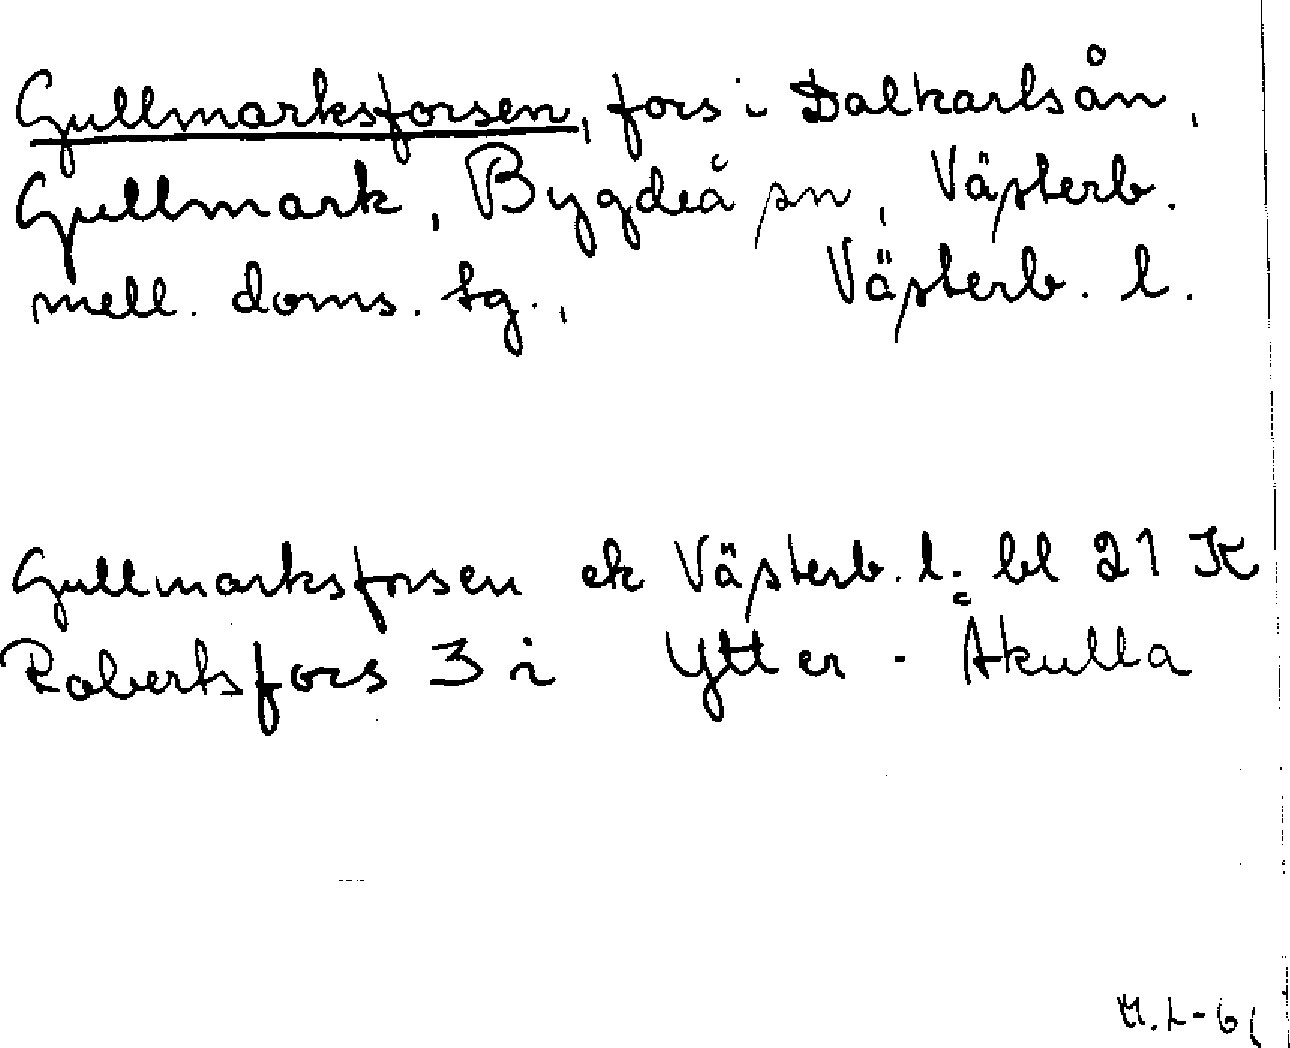 Gullmarksforsen, fors i Dalkarlsån,
Gullmark, Bygdeå sn, Västerb.
mell. doms. tg., Västerb. l.
Gullmarksforsen ek Västerb. l. bl 21 K
Robertsfors 3 i Ytter-Åkulla